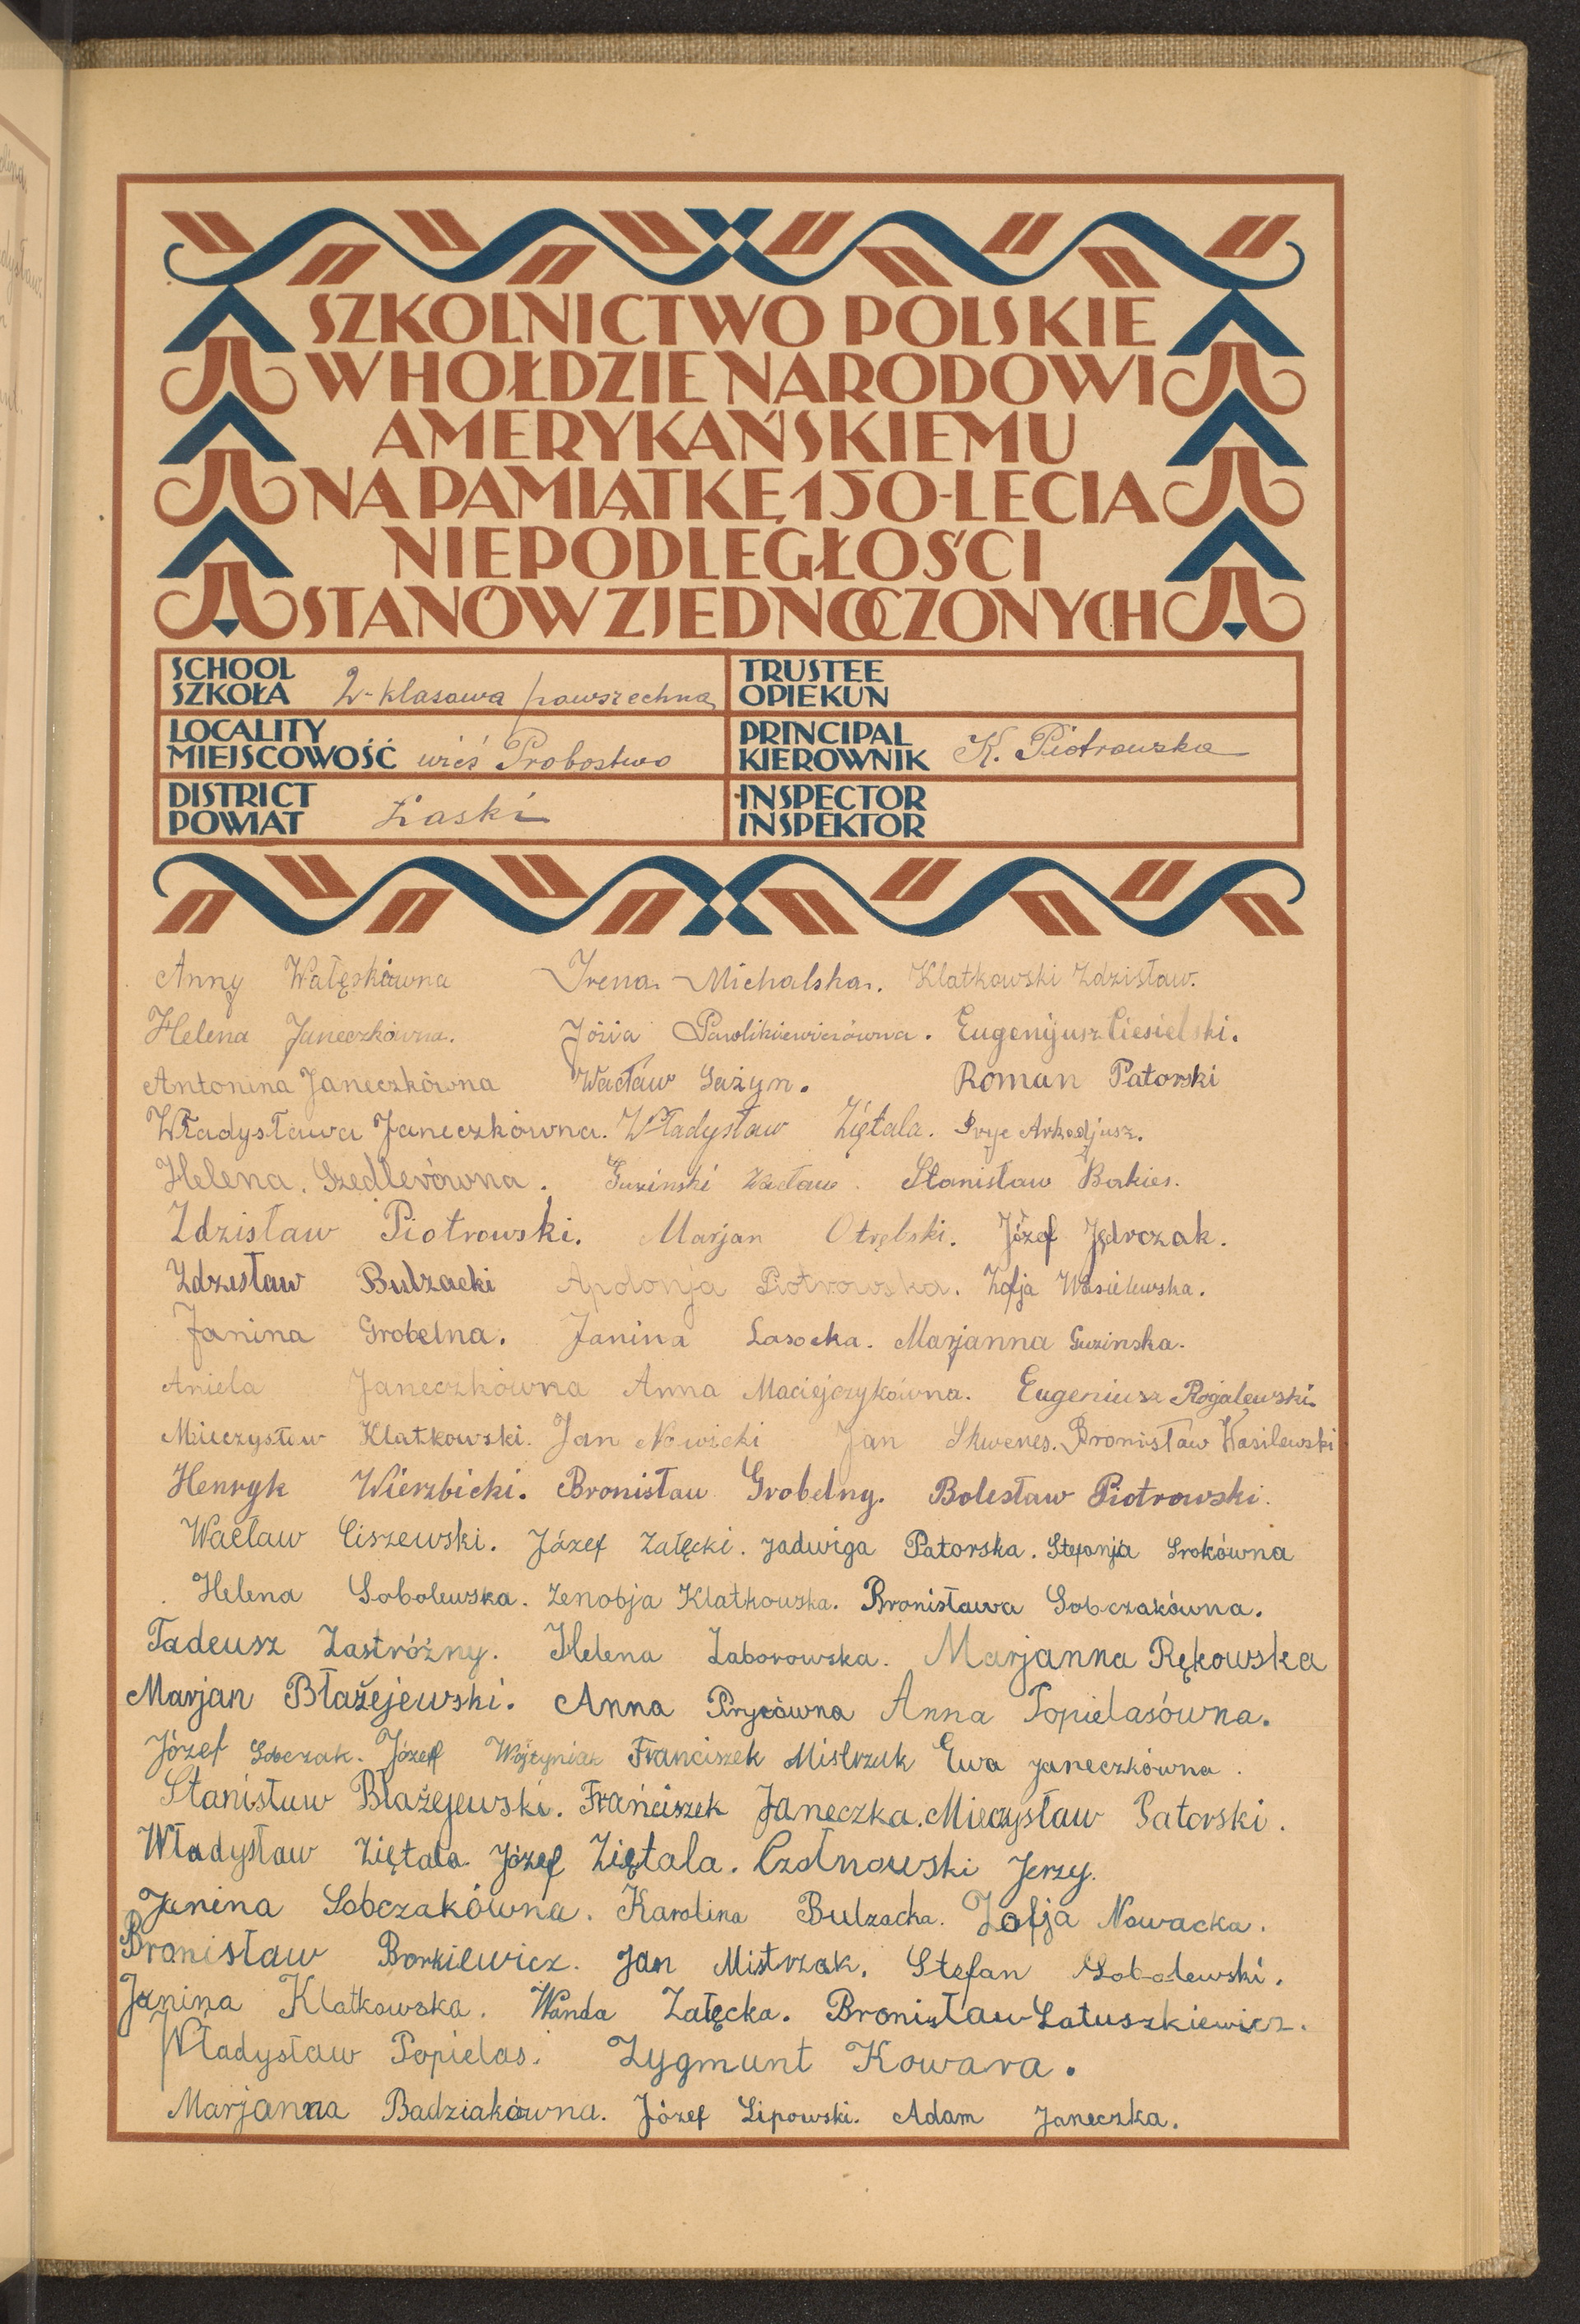 SZKOLNICTWO POLSKIE
W HOŁDZIE NARODOWI
AMERYKAŃSKIEMU
NA PAMIĄTKĘ 150-LECIA
NIEPODLEGŁOŚCI
STANÓW ZJEDNOCZONYCH
SCHOOL
SZKOŁA 2-klasowa powszechna
TRUSTEE
OPIEKUN
LOCALITY
MIEJSCOWOŚĆ wieś Probostwo
PRINCIPAL
KIEROWNIK K. Piotrowska
DISTRICT
POWIAT Łaski
INSPECTOR
INSPEKTOR
Anny Wałęskiówna Irena Michalska. Klatkowski Zdzisław.
Helena Janeczkówna. Józia Pawlikiewiczówna. Eugenijusz Ciesielski.
Antonina Janeczkówna Wacław Gażyn. Roman Patorski
Władysława Janeczkówna. Władysław Ziętala. Pryc Arkadjusz.
Helena. Szedlerówna. Guzinski Wacław. Stanisław Bakies.
Zdzisław Piotrowski. Marjan Otrębski. Józef Jędrczak.
Zdzisław Bulzacki Apolonja Piotrowska. Zofja Wasielewska.
Janina Grobelna. Janina Lasocka. Marjanna Guzinska.
Aniela Janeczkówna Anna Maciejczykówna. Eugeniusz Rogalewski.
Mieczysław Klatkowski. Jan Nowicki Jan Skweres. Bronisław Wasilewski
Henryk Wierzbicki. Bronisław Grobelny. Bolesław Piotrowski.
Wacław Ciszewski. Józef Załęcki. Jadwiga Patorska. Stefanja Srokówna
Helena Sobolewska. Zenobja Klatkowska. Bronisława Sobczakówna.
Tadeusz Zastróżny. Helena Zaborowska. Marjanna Rękowska
Marjan Błażejewski. Anna Prycówna Anna Popielasówna.
Józef Sobczak. Józef Wojtyniak Franciszek Mistrzak Ewa Janeczkówna.
Stanisław Błażejewski. Franciszek Janeczka. Mieczysław Patorski.
Władysław Ziętala Józef Ziętala. Czołnowski Jerzy.
Janina Sobczakówna. Karolina Bulzacka. Zofja Nowacka.
Bronisław Borkiewicz. Jan Mistrzak. Stefan Sobolewski.
Janina Klatkowska. Wanda Załęcka. Bronisław Łatuszkiewicz.
Władysław Popielas. Zygmunt Kowara.
Marjanna Badziakówna. Józef Lipowski. Adam Janeczka.